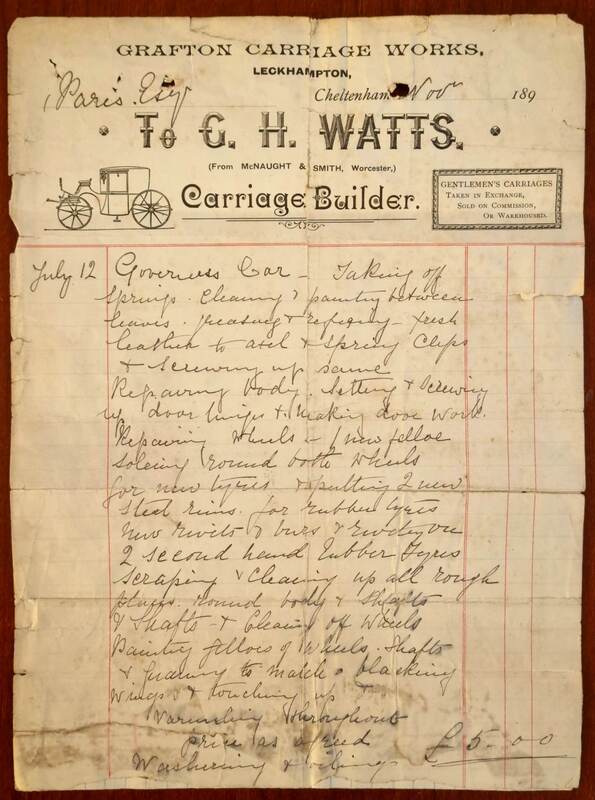 GRAFTON CARRIAGE WORKS,
LECKHAMPTON,
Paris. Esq
Cheltenham, Nov 189
To G. H. WATTS.
(From McNAUGHT & SMITH, Worcester,)
Carriage Builder.
GENTLEMEN'S CARRIAGES
TAKEN IN EXCHANGE,
SOLD ON COMMISSION,
OR WAREHOUSED.
July 12 Governess Car - Taking off
Springs. Cleaning & painting between
leaves. Greasing & refixing - fresh
leather to axel & Spring Clips
& Screwing up same
Repairing body. Setting & Screwing
up door hinges & making door work.
Repairing wheels - 1 new felloe
Soleing round both wheels
for new tyres & putting 2 new
Steel rims for rubber tyres
new rivits & burs &
2 second hand rubber Tyres
Scraping & Cleaning up all rough
places. round body & Shafts
& Shafts & Cleaning off wheels
Painting felloes of wheels. Shafts
& to match. blacking
wings & touching up &
Varnishing throughout
price as agreed £5-0 0
Washering & oiling